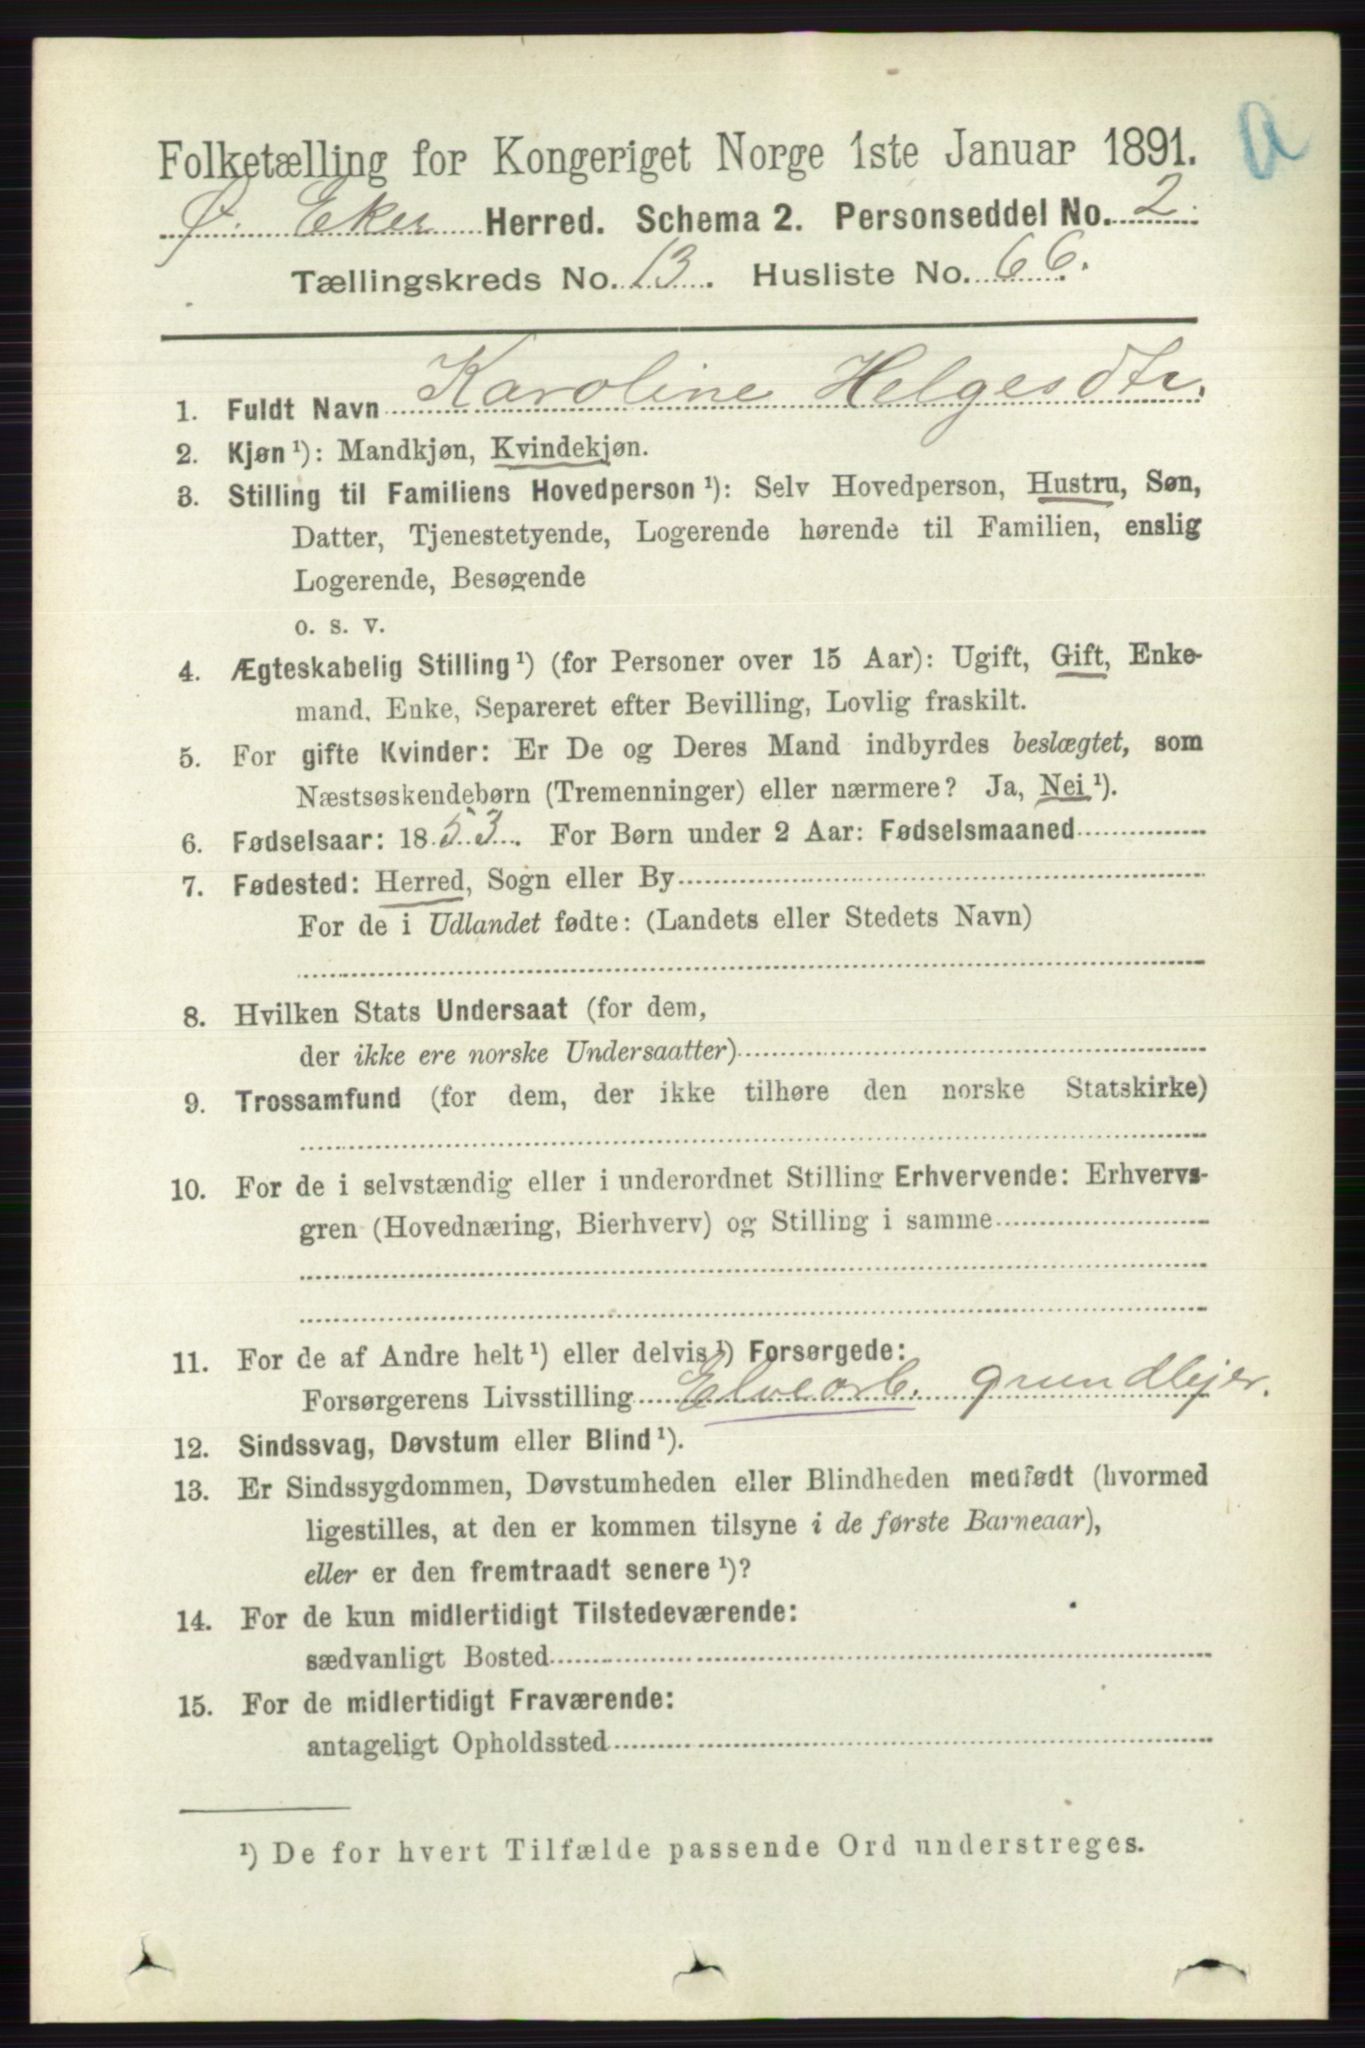 a
Folketælling for Kongeriget Norge 1ste Januar 1891.
Ø. Eker Herred. Schema 2. Personseddel No. 2.
Tællingskreds No. 13. Husliste No. 66.
1. Fuldt Navn Karoline Helgesdtr.
2. Kjøn ¹): Mandkjøn, Kvindekjøn.
3. Stilling til Familiens Hovedperson ¹): Selv Hovedperson, Hustru, Søn,
Datter, Tjenestetyende, Logerende hørende til Familien, enslig
Logerende, Besøgende
o. s. v.
4. Ægteskabelig Stilling ¹) (for Personer over 15 Aar): Ugift, Gift, Enke-
mand, Enke, Separeret efter Bevilling, Lovlig fraskilt.
5. For gifte Kvinder: Er De og Deres Mand indbyrdes beslægtet, som
Næstsøskendebørn (Tremenninger) eller nærmere? Ja, Nei ¹).
6. Fødselsaar: 1853. For Børn under 2 Aar: Fødselsmaaned
7. Fødested: Herred, Sogn eller By
For de i Udlandet fødte: (Landets eller Stedets Navn)
8. Hvilken Stats Undersaat (for dem,
der ikke ere norske Undersaatter)
9. Trossamfund (for dem, der ikke tilhøre den norske Statskirke)
10. For de i selvstændig eller i underordnet Stilling Erhvervende: Erhvervs-
gren (Hovednæring, Bierhverv) og Stilling i samme
11. For de af Andre helt ¹) eller delvis ¹) Forsørgede:
Forsørgerens Livsstilling Elvearb. grundejer.
12. Sindssvag, Døvstum eller Blind ¹).
13. Er Sindssygdommen, Døvstumheden eller Blindheden medfødt (hvormed
ligestilles, at den er kommen tilsyne i de første Barneaar),
eller er den fremtraadt senere ¹)?
14. For de kun midlertidigt Tilstedeværende:
sædvanligt Bosted
15. For de midlertidigt Fraværende:
antageligt Opholdssted
¹) De for hvert Tilfælde passende Ord understreges.